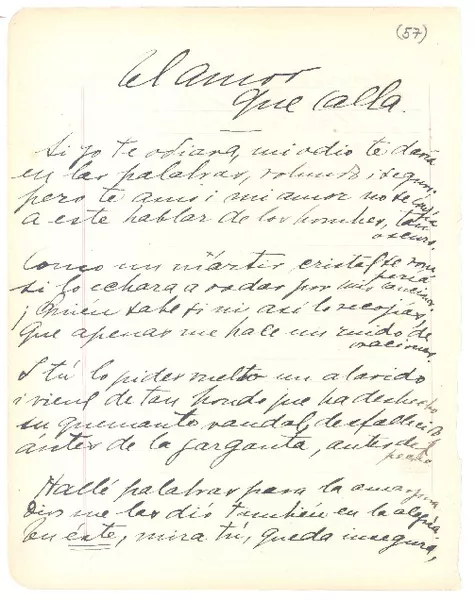 (57)
El amor
que calla.
Si yo te odiara, mi odio te daría
en las palabras, rotundo i seguro;
pero te amo i mi amor no se confía
a este hablar de los hombres, tan
oscuro.
Como un mártir cristal se rom
pería
si lo echara a rodar por mis canciones
¡Quién sabe si ni así lo recojías,
que apenas me hace un ruido de
oraciones.
I tú lo pides vuelto un alarido
i viene de tan hondo que ha deshecho
su quemante raudal, desfallecido
ántes de la garganta, antes del
pecho
Hallé palabras para la amargura
Dios me las dió también en la alegría.
En éste, mira tú, queda insegura,